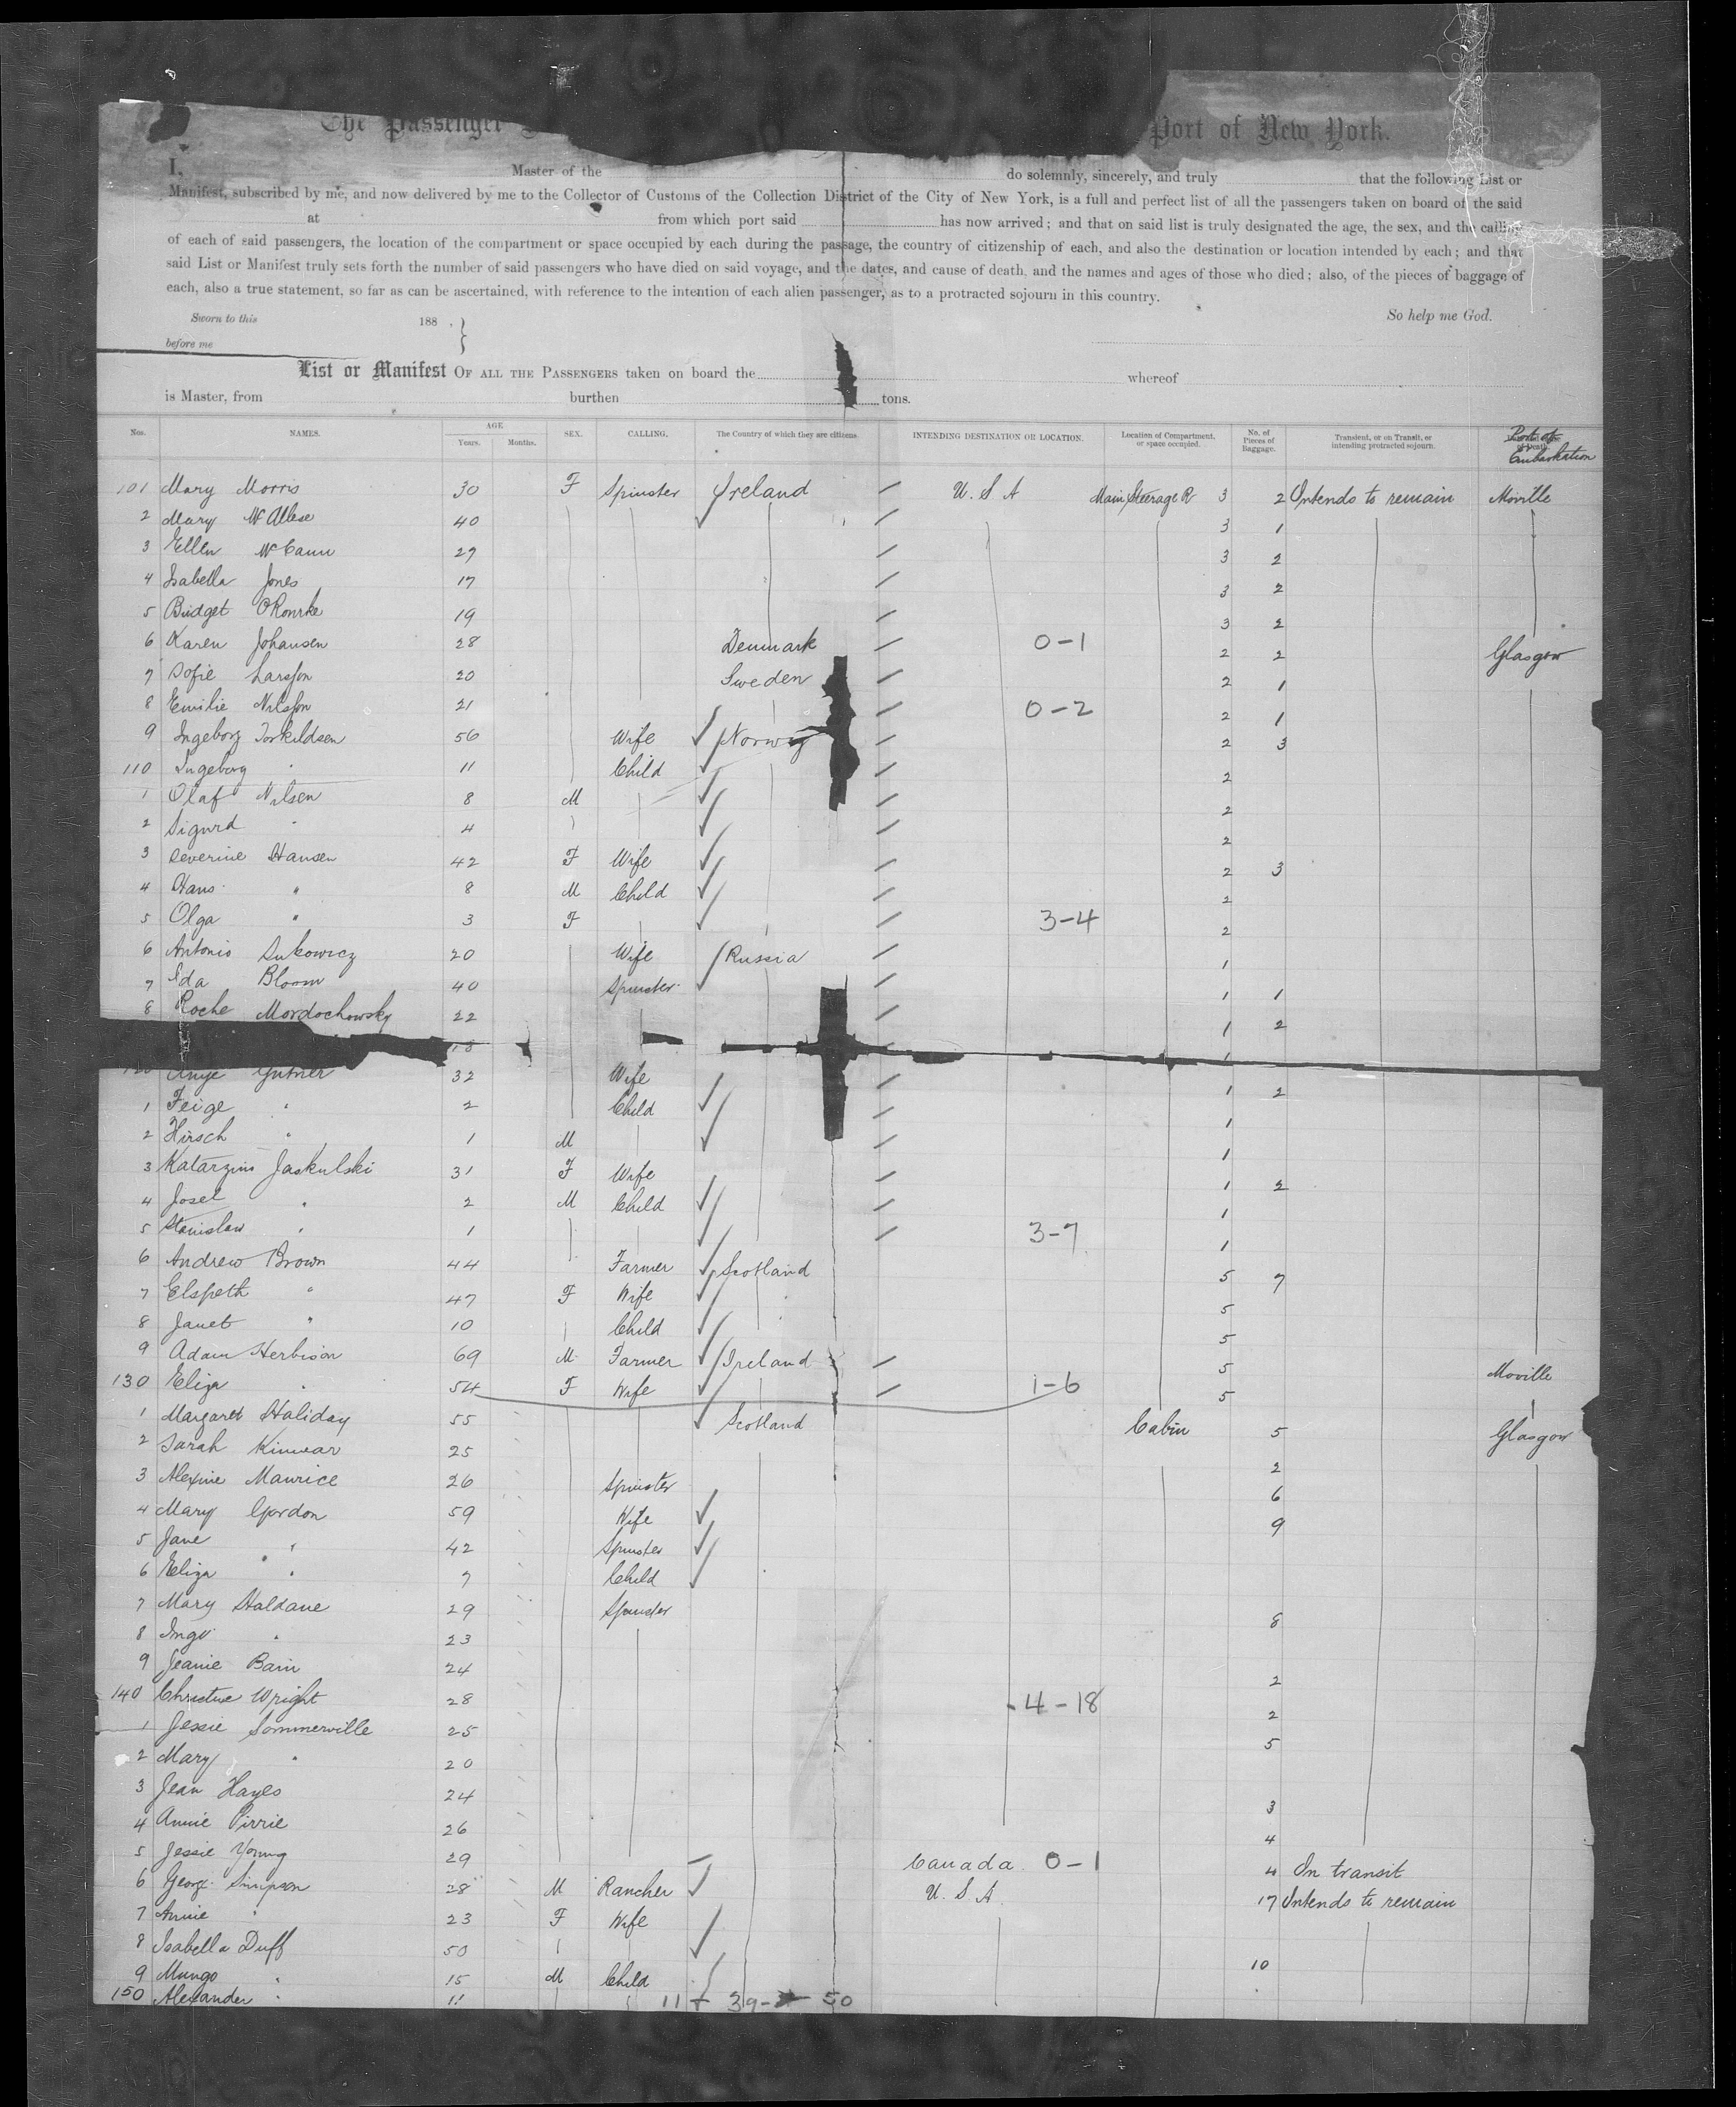 The Passenger Port of New York.
I, Master of the do solemnly, sincerely, and truly that the following List or
Manifest, subscribed by me, and now delivered by me to the Collector of Customs of the Collection District of the City of New York, is a full and perfect list of all the passengers taken on board of the said
at from which port said has now arrived; and that on said list is truly designated the age, the sex, and the calling
of each of said passengers, the location of the compartment or space occupied by each during the passage, the country of citizenship of each, and also the destination or location intended by each; and that
said List or Manifest truly sets forth the number of said passengers who have died on said voyage, and the dates, and cause of death, and the names and ages of those who died; also, of the pieces of baggage of
each, also a true statement, so far as can be ascertained, with reference to the intention of each alien passenger, as to a protracted sojourn in this country.
Sworn to this 188 . So help me God.
before me
List or Manifest OF ALL THE PASSENGERS taken on board the whereof
is Master, from burthen tons.
Nos. NAMES. AGE Years. Months. SEX. CALLING. The Country of which they are citizens. INTENDING DESTINATION OR LOCATION. Location of Compartment, or space occupied. No. of Pieces of Baggage. Transient, or on Transit, or intending protracted sojourn. Port of Embarkation
101 Mary Morris 30 F Spinster Ireland U.S.A Main Steerage R 3 2 Intends to remain Moville
2 Mary McAleese 40 3 1
3 Ellen McCann 27 3 2
4 Isabella Jones 17 3 2
5 Bridget O'Rourke 19 3 2
6 Karen Johansen 28 Denmark 0-1 2 2 Glasgow
7 Sofie Larsson 20 Sweden 2 1
8 Emilie Nilsson 21 0-2 2 1
9 Ingeborg Torkildsen 56 Wife Norway 2 3
110 Ingeborg " 11 Child 2
1 Olaf Nilsen 8 M 2
2 Sigurd " 4 2
3 Severine Hansen 42 F Wife 2 3
4 Hans " 8 M Child 2
5 Olga " 3 F 3-4 2
6 Antonis Sukowicz 20 Wife Russia 1
7 Ida Bloom 40 Spinster 1 1
8 Roche Mordochowsky 22 1 2
18 1
120 Gutner 32 Wife 1 2
1 Feige " 2 Child 1
2 Hirsch " 1 M 1
3 Katarzins Jaskulski 31 F Wife 1 2
4 Josel " 2 M Child 1
5 Stanislaw " 1 3-7 1
6 Andrew Brown 44 Farmer Scotland 5 7
7 Elspeth " 47 F Wife 5
8 Janet " 10 Child 5
9 Adam Herbison 69 M Farmer Ireland 5 Moville
130 Eliza " 54 F Wife 1-6 5
1 Margaret Haliday 55 Scotland Cabin 5 Glasgow
2 Sarah 25 2
3 Alexine Maurice 26 Spinster 6
4 Mary Gordon 59 Wife 9
5 Jane " 42 Spinster
6 Eliza " 7 Child
7 Mary Haldane 29 Spinster 8
8 " 23
9 Jeanie Bain 24 2
140 Christine Wright 28 4-18 2
1 Jessie Sommerville 25 5
2 Mary " 20
3 Jean Hayes 24 3
4 Annie Pirrie 26 4
5 Jessie Young 29 Canada 0-1 4 In transit
6 George Simpson 28 M Rancher U.S.A 17 Intends to remain
7 Annie " 23 F Wife
8 Isabella Duff 50 10
9 Mungo " 15 M Child
150 Alexander " 11 11 + 39 - 50